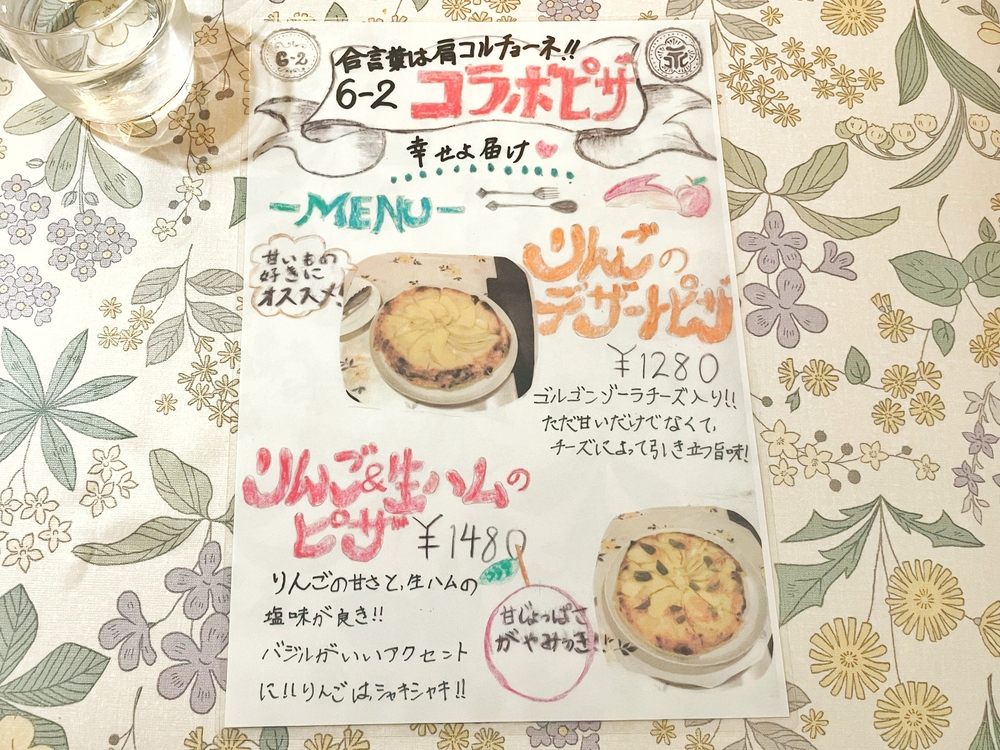 合言葉は肩コルチョーネ!!
6-2
6-2 コラボピザ
幸せよ届け
-MENU-
甘いもの
好きに
オススメ!
りんごの
デザートピザ
¥1280
ゴルゴンゾーラチーズ入り!!
ただ甘いだけでなくて、
チーズによって引き立つ旨味!
りんご&生ハムの
ピザ ¥1480
りんごの甘さと、生ハムの
塩味が良き!!
バジルがいいアクセント
に!!りんごは、シャキシャキ!!
甘じょっぱさ
がやみつき!!